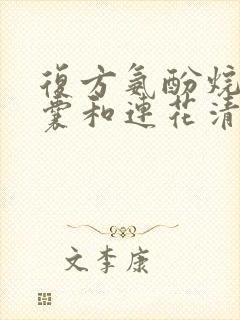 復方氨酚烷
囊和連花清
文李康